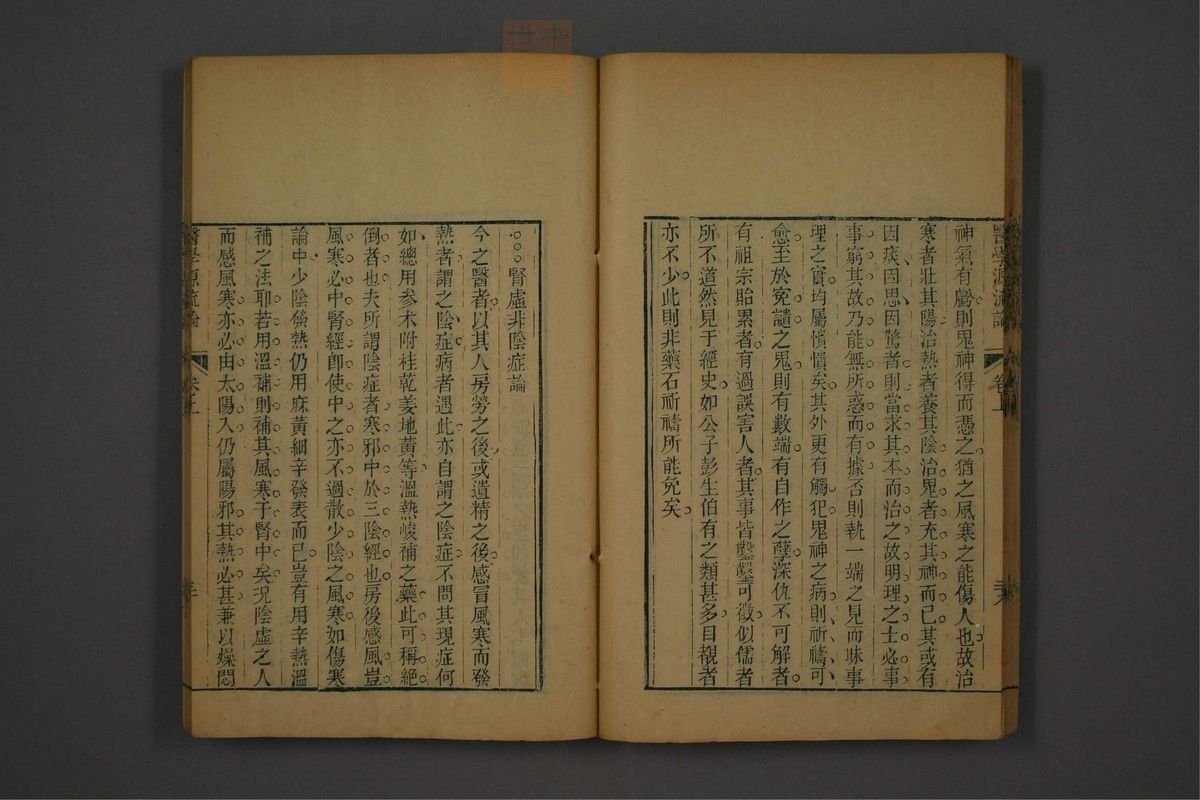 神氣有虧則鬼神得而憑之猶之風寒之能傷人也故治
寒者壯其陽治熱者養其陰治鬼者充其神而已其或有
因痰因思因驚者則當求其本而治之故明理之士必事
事窮其故乃能無所惑而有據否則執一端之見而昧事
理之實均屬憒憒矣其外更有觸犯鬼神之病則祈禱可
愈至於寃譴之鬼則有數端有自作之孽深仇不可解者
有祖宗貽累者有過誤害人者其事皆鑿鑿可徵似儒者
所不道然見于經史如公子彭生伯有之類甚多目覩者
亦不少此則非藥石祈禱所能免矣
腎虛非陰症論
今之醫者以其人房勞之後或遺精之後感冒風寒而發
熱者謂之陰症病者遇此亦自謂之陰症不問其現症何
如總用參朮附桂乾姜地黃等溫熱峻補之藥此可稱絕
倒者也夫所謂陰症者寒邪中於三陰經也房後感風豈
風寒必中腎經卽使中之亦不過散少陰之風寒如傷寒
論中少陰發熱仍用麻黃細辛發表而已豈有用辛熱溫
補之法耶若用溫補則補其風寒于腎中矣况陰虛之人
而感風寒亦必由太陽入仍屬陽邪其熱必甚兼以燥悶
醫學源流論
卷上